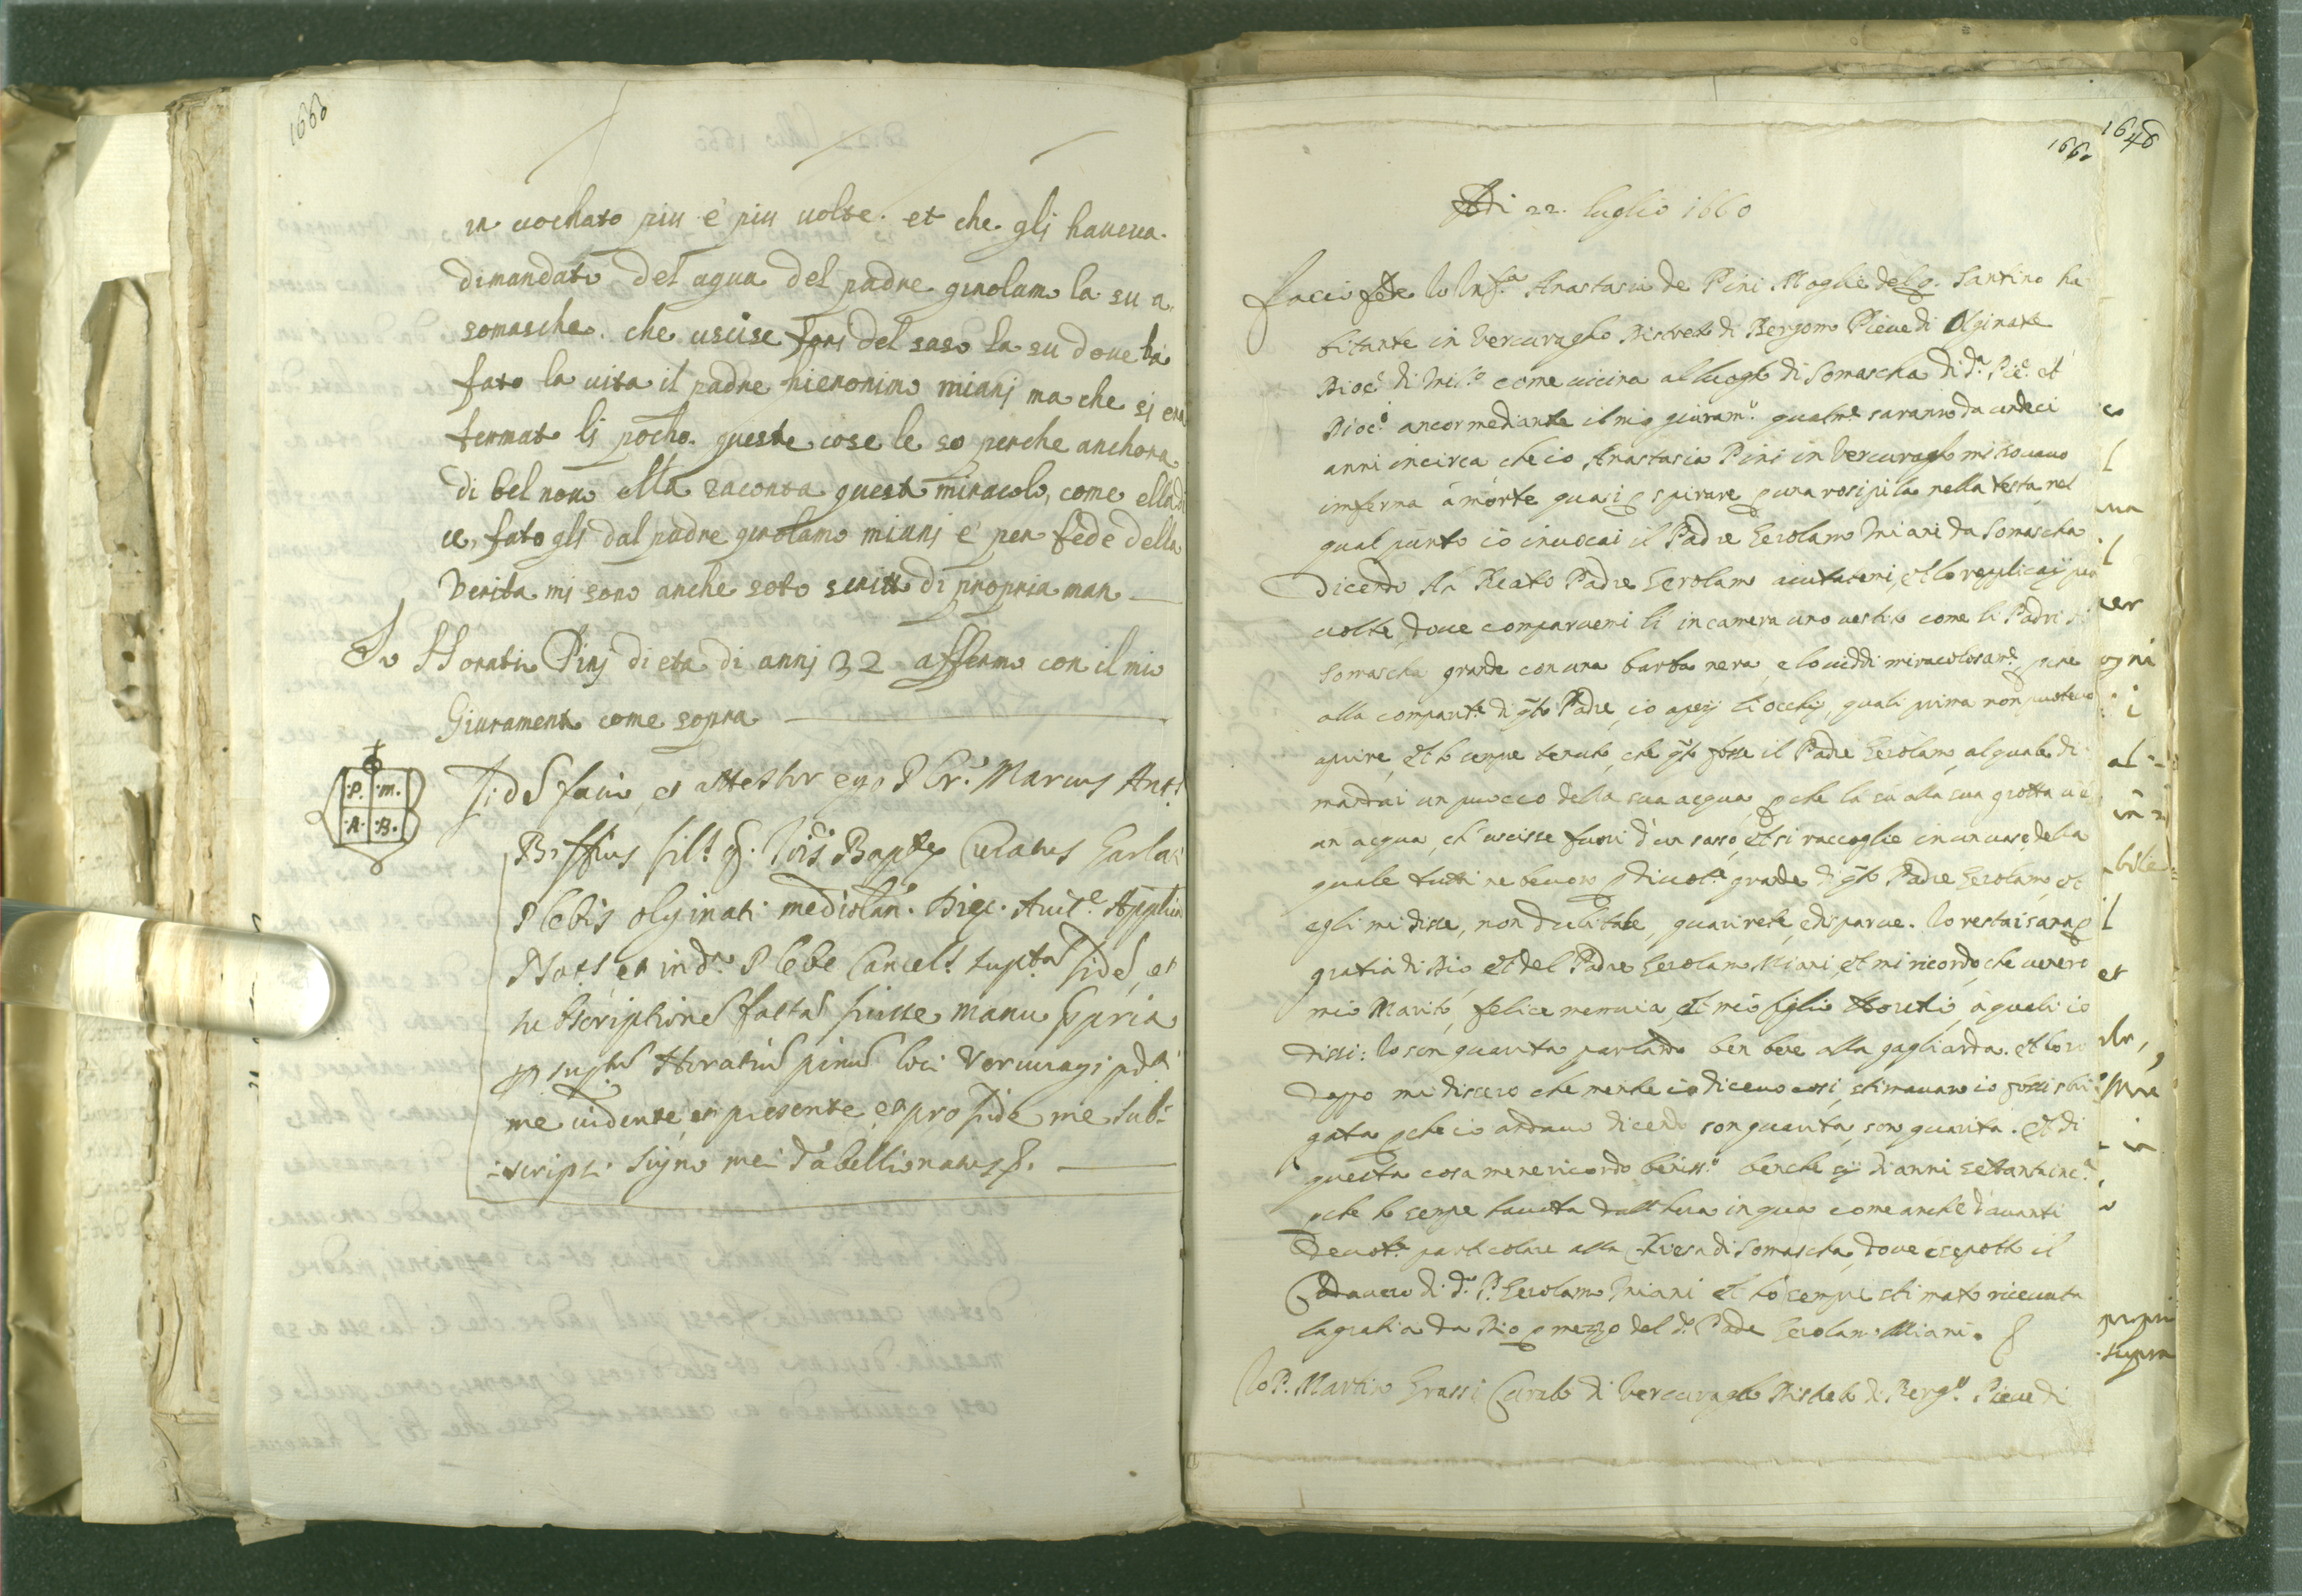 1660
in uochato piu e' piu uolte. et che gli haueua
dimandato del aqua del padre girolamo la su a
somascha. che uscise fori del saso la su doue ha
fato la uita il padre hieronimo mianj ma che si era
fermato lj pocho. queste cose le so perche anchora
di bel nouo ella raconta questo miracolo, come ella di
ce, fato gli dal padre girolamo mianj e' per fede della
Verita mi sono anche soto scritto di propria man
Io Horatio Pinj di eta di annj 32 affermo con il mio
Giuramento come sopra
.P. .M.
.A. .B.
Fidē facio, et attestor ego P. Cr. Marcus Ant.
filˢ q. Baptē Curatus Garlaˡ
Plebis olginati mediolan. Dioc. Autᵉ. Applica
Notˢ, et in dᵃ. Plebe Cancelˢ suptᵃᵐ fidē, et
subscriptionē factā fuisse manu ppria
p supᵗᵘᵐ Horatiū pinū loci Vercuragi pdᵗⁱ
me uidente, et presente, et pro fide me sub-
-scripsi signo mei Tabellionatus
1646
1660
Adi 22. luglio 1660
Faccio fede Io Infᵃ Anastasia de Pini Moglie del q. Santino ha
bitante in Vercuragho Distreto di Bergomo Pieue di Olginate
Diocᵉ di Milᵒ come uicina al luogo di Somascha di dᵃ. Pieᵉ. et
Diocᵉ ancor mediante il mio giuramᵗᵒ qualmᵉ saranno da undeci
anni incirca che io Anastasia Pini in Vercuragho mi trouauo
imferma à morte quasi p spirare p una rosipila nella testa nel
qual punto io inuocai il Padre Gerolamo Miani da Somascha
dicendo Ah Beato Padre Gerolamo aiutatemi, et lo replicaij piu
uolte, doue comparuemi li in camera uno uestito come li Padri di
Somascha grande con una barba nera, e lo uiddi miracolosamᵉ, pche
alla comparitᵃ di qᵗᵒ Padre, io apersi li occhij, quali prima non poteuo
aprire, et hò sempre tenuto, che qᵗᵒ fosse il Padre Gerolamo, al quale di
mandai un puoco della sua acqua, pche là sù alla sua grotta ui è
un acqua, ch'uscisse fuori d'un sasso, et si raccoglie in un uaso della
quale tutti ne beuono p diuotᵉ grande di qᵗᵒ Padre Gerolamo, et
egli mi disse, non dubitate, guarirete, e disparue. Io restai sana p
gratia di Dio, et del Padre Gerolamo Miani, et mi ricordo, che uenero
mio Marito, felice memoria, et mio figlio Horatio, à quali io
dissi: Io son guarita parlando ben bene alla gagliarda. et loro
doppo mi dissero che mentre io diceuo cosi, stimauano io fossi
gata pche io andauo dicendo son guarita, son guarita. Et di
questa cosa me ne ricordo benissᵒ benche sij di anni settanta incᵃ
pche hò sempre hauuta dall'hora in qua come anche d'auanti
deuotᵉ particolare alla Chiesa di Somascha, doue è sepolto il
Cadauero di dᵒ. P. Gerolamo Miani et hò sempre stimato riceuuta
la gratia da Dio p mezzo del dᵒ Padre Gerolamo Miani.
Io P. Martino Grassi Curato di Vercuragho Distreto di Bergᵒ. Pieue di